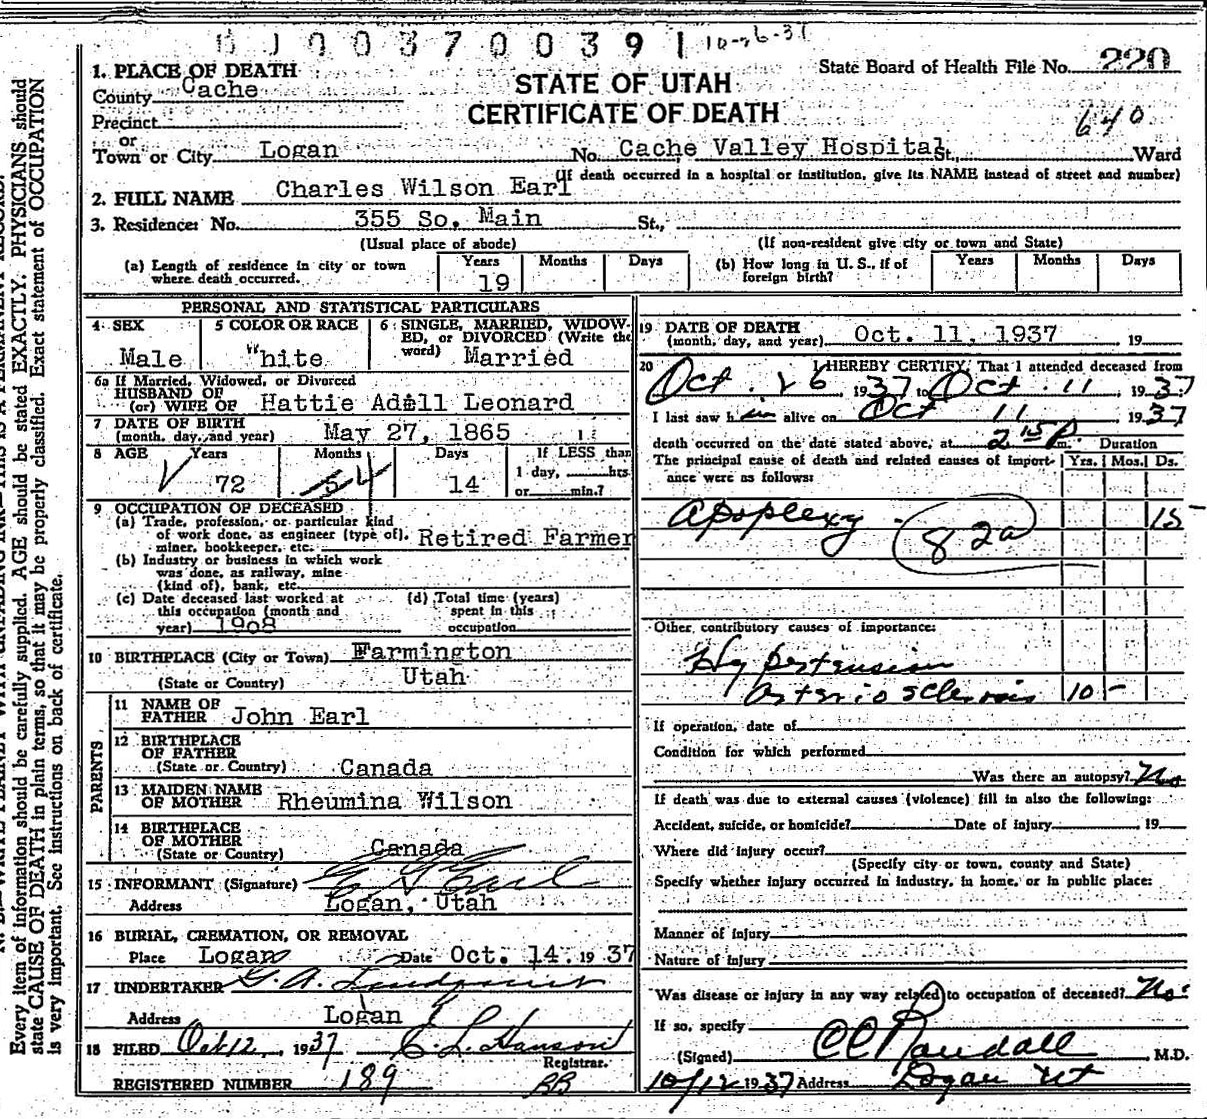 B J 0 0 3 7 0 0 3 9 1 10-26-37
State Board of Health File No. 220
STATE OF UTAH
CERTIFICATE OF DEATH
640
1. PLACE OF DEATH
County Cache
Precinct
or
Town or City Logan No. Cache Valley Hospital St., Ward
(If death occurred in a hospital or institution, give its NAME instead of street and number)
2. FULL NAME Charles Wilson Earl
3. Residence: No. 355 So. Main St.,
(Usual place of abode) (If non-resident give city or town and State)
(a) Length of residence in city or town where death occurred. Years 19 Months Days
(b) How long in U. S., if of foreign birth? Years Months Days
PERSONAL AND STATISTICAL PARTICULARS
4 SEX Male
5 COLOR OR RACE White
6 SINGLE, MARRIED, WIDOWED, or DIVORCED (Write the word) Married
6a If Married, Widowed, or Divorced
HUSBAND OF
(or) WIFE OF Hattie Adell Leonard
7 DATE OF BIRTH
(month, day, and year) May 27, 1865
8 AGE Years 72 Months 5 4 Days 14
If LESS than
1 day, hrs
or min.?
9 OCCUPATION OF DECEASED
(a) Trade, profession, or particular kind
of work done, as engineer (type of),
miner, bookkeeper, etc. Retired Farmer
(b) Industry or business in which work
was done, as railway, mine
(kind of), bank, etc.
(c) Date deceased last worked at
this occupation (month and
year) 1908
(d) Total time (years)
spent in this
occupation
10 BIRTHPLACE (City or Town) Farmington
(State or Country) Utah
PARENTS
11 NAME OF
FATHER John Earl
12 BIRTHPLACE
OF FATHER
(State or Country) Canada
13 MAIDEN NAME
OF MOTHER Rheumina Wilson
14 BIRTHPLACE
OF MOTHER
(State or Country) Canada
15 INFORMANT (Signature) Earl
Address Logan, Utah
16 BURIAL, CREMATION, OR REMOVAL
Place Logan Date Oct. 14. 19 37
17 UNDERTAKER G. A. Lindquist
Address Logan
18 FILED Oct 12, 1937 E. L. Hanson
Registrar.
REGISTERED NUMBER 189 BB
19 DATE OF DEATH
(month, day, and year) Oct. 11, 1937 , 19
20 I HEREBY CERTIFY, That I attended deceased from
Oct. 26, 1937 to Oct. 11, 1937
I last saw him alive on Oct 11 1937
death occurred on the date stated above, at 2 15 P m. Duration
The principal cause of death and related causes of importance were as follows: Yrs. Mos. Ds.
Apoplexy 15 -
82a
Other contributory causes of importance:
Hypertension
arterio sclerosis 10 -
If operation, date of
Condition for which performed
Was there an autopsy? No
If death was due to external causes (violence) fill in also the following:
Accident, suicide, or homicide? Date of injury 19
Where did injury occur?
(Specify city or town, county and State)
Specify whether injury occurred in industry, in home, or in public place:
Manner of injury
Nature of injury
Was disease or injury in any way related to occupation of deceased? No.
If so, specify
(Signed) CC Randall M.D.
10/12 1937 Address Logan Ut
Every item of information should be carefully supplied. AGE should be stated EXACTLY. PHYSICIANS should
state CAUSE OF DEATH in plain terms, so that it may be properly classified. Exact statement of OCCUPATION
is very important. See instructions on back of certificate.